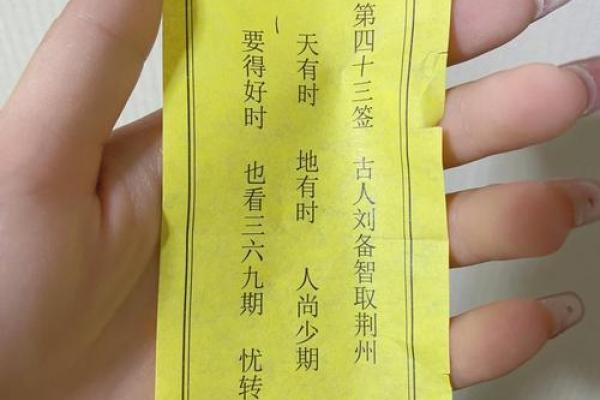 第四十三签 古人刘备智取荆州
天有时 地有时 人尚少期
要得好时 也看三六九期 忧转